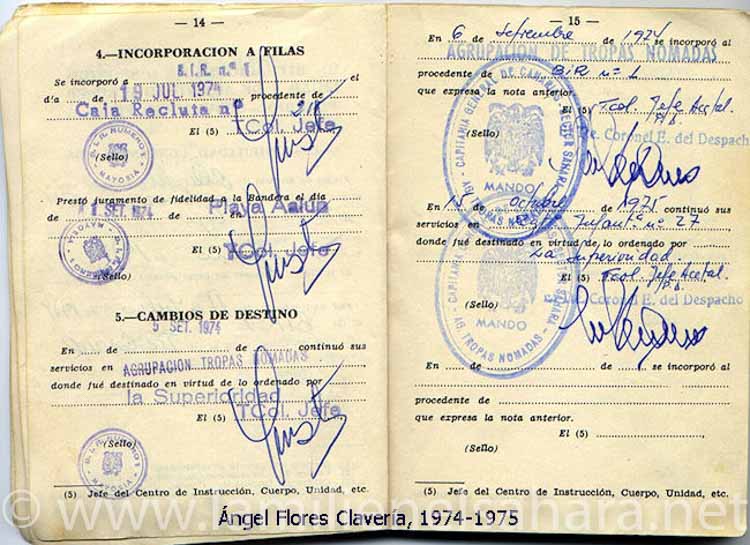 — 14 —
4.—INCORPORACION A FILAS
B.I.R. n.º 1
Se incorporó a el
19 JUL 1974
día de de procedente de
Caja Recluta nº
El (5) TCol. Jefe
(Sello)
B. I. R. NUMERO 1
MAYORIA
Prestó juramento de fidelidad a la Bandera el día
1 SET. 1974 Playa Aaiun
de de en
El (5) TCol. Jefe
(Sello)
5.—CAMBIOS DE DESTINO
5 SET. 1974
En de de continuó sus
servicios en AGRUPACION TROPAS NOMADAS
donde fué destinado en virtud de lo ordenado por
la Superioridad
El (5) TCol. Jefe
(Sello)
(5) Jefe del Centro de Instrucción, Cuerpo, Unidad, etc.
— 15 —
En 6 de Setiembre de 1974 se incorporó al
AGRUPACION DE TROPAS NOMADAS
procedente de BIR nº 1
que expresa la nota anterior.
El (5) Tcol. Jefe Acctal.
P.D.
Te. Coronel E. del Despacho
(Sello)
MANDO
En 15 de Octubre de 1975 continuó sus
servicios en Infant.ª nº 27
donde fué destinado en virtud de lo ordenado por
La Superioridad.
El (5) Tcol. Jefe Acctal.
P.D.
Coronel E. del Despacho
(Sello)
MANDO
AG. TROPAS NOMADAS
En de de se incorporó al
procedente de
que expresa la nota anterior.
El (5)
(Sello)
(5) Jefe del Centro de Instrucción, Cuerpo, Unidad, etc.
Ángel Flores Clavería, 1974-1975